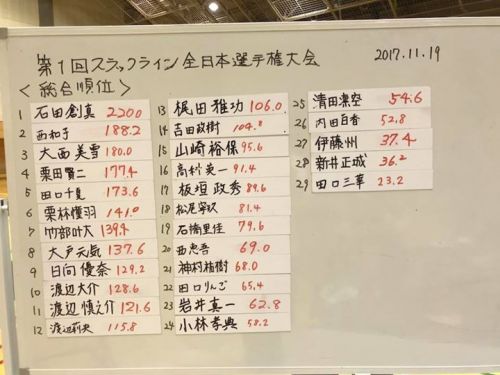 第1回スラックライン全日本選手権大会
2017.11.19
<総合順位>
1 石田創真 220.0
2 西和子 188.2
3 大西美雪 180.0
4 栗田賢二 177.4
5 田口千夏 173.6
6 栗林優羽 141.0
7 竹部叶大 139.4
8 大戸元気 137.6
9 日向優奈 129.2
10 渡辺大介 128.6
11 渡辺慎之介 121.6
12 渡辺莉央 115.8
13 梶田雅功 106.0
14 吉田政樹 104.8
15 山崎裕保 95.6
16 高杉英一 91.4
17 板垣政秀 89.6
18 松尾寧玖 81.4
19 石橋里佳 79.6
20 西恵吾 69.0
21 神村植樹 68.0
22 田口りんご 65.4
23 岩井真一 62.8
24 小林孝典 58.2
25 清田凜空 54.6
26 内田百香 52.8
27 伊藤州 37.4
28 新井正城 36.2
29 田口三華 23.2